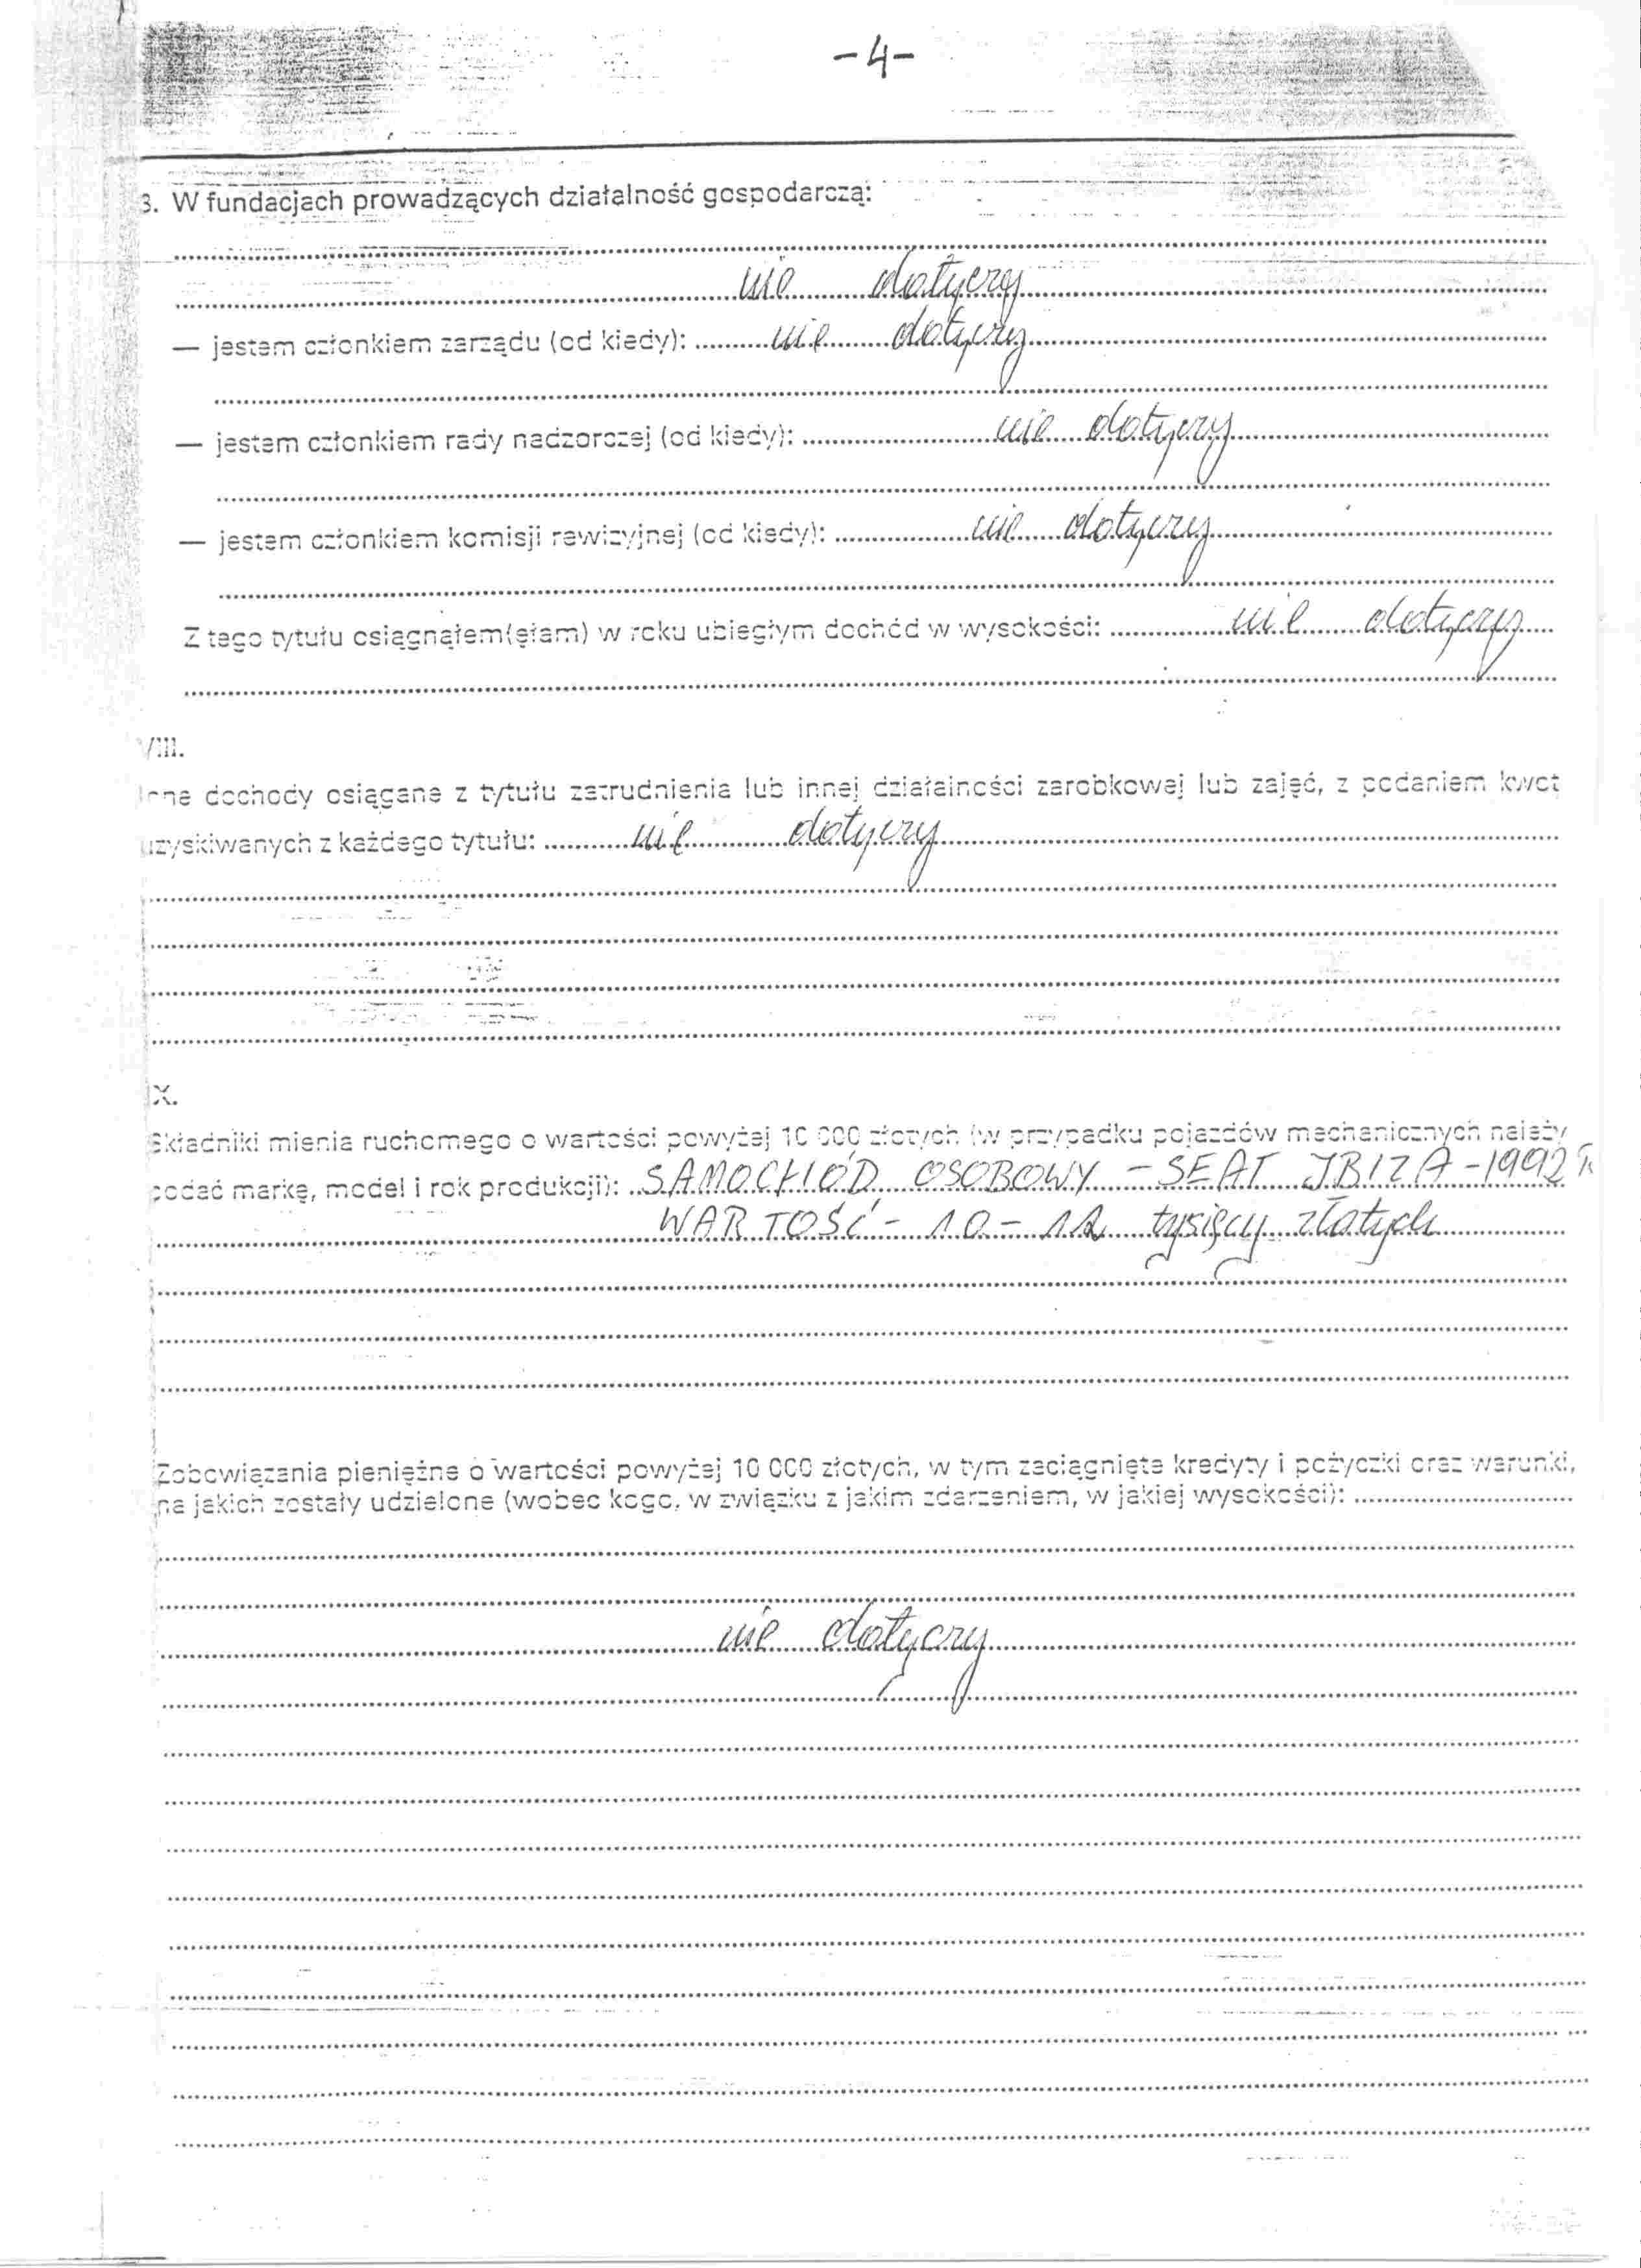 -4-
3. W fundacjach prowadzących działalność gospodarczą:
nie dotyczy
— jestem członkiem zarządu (od kiedy): nie dotyczy
— jestem członkiem rady nadzorczej (od kiedy): nie dotyczy
— jestem członkiem komisji rewizyjnej (od kiedy): nie dotyczy
Z tego tytułu osiągnąłem(ęłam) w roku ubiegłym dochód w wysokości: nie dotyczy
VIII.
Inne dochody osiągane z tytułu zatrudnienia lub innej działalności zarobkowej lub zajęć, z podaniem kwot
uzyskiwanych z każdego tytułu: nie dotyczy
IX.
Składniki mienia ruchomego o wartości powyżej 10 000 złotych (w przypadku pojazdów mechanicznych należy
podać markę, model i rok produkcji): SAMOCHÓD OSOBOWY - SEAT IBIZA - 1992 r
WARTOŚĆ - 10 - 12 tysięcy złotych
Zobowiązania pieniężne o wartości powyżej 10 000 złotych, w tym zaciągnięte kredyty i pożyczki oraz warunki,
na jakich zostały udzielone (wobec kogo, w związku z jakim zdarzeniem, w jakiej wysokości):
nie dotyczy